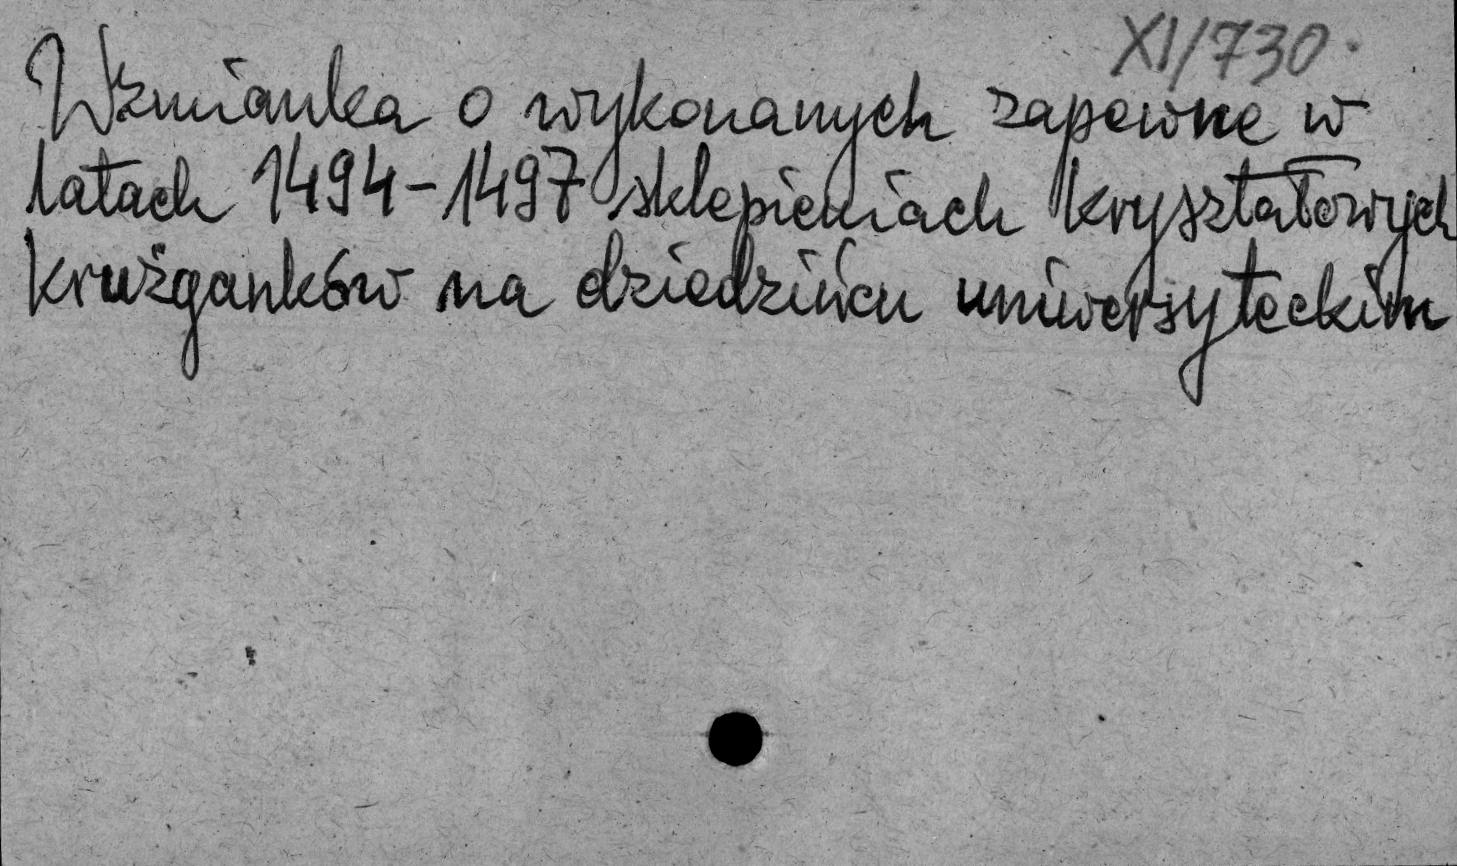 XI/730.
Wzmianka o wykonanych zapewne w
latach 1494-1497 sklepieniach kryształowych
krużganków na dziedzińcu uniwersyteckim